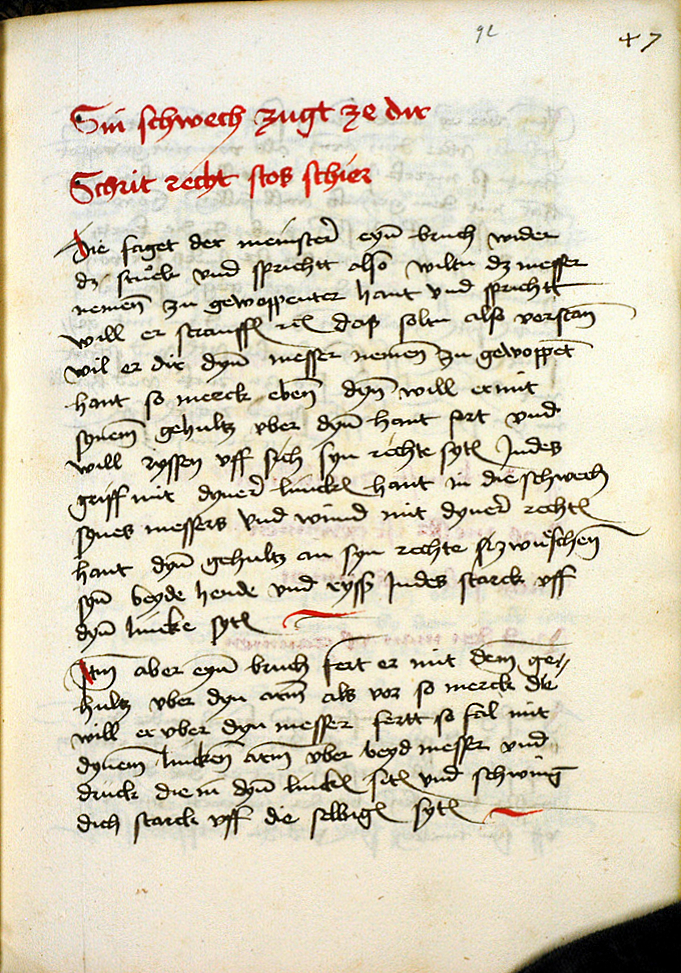 92
47
Sin schwech zugt ze dir
Schrit recht stos schier
Hie saget der meinster eyn bruch wider
dz stuck vnd sprichtt also wiltu dz messer
nemen zu gewoppenter hant vnd sprichtt
will er strauffen etc das soltu also verstan
wil er dir dyn messer nemen zu gewoppet
hant so merck eben dyn will er mit
synem gehultz vber dyn hant fort vnd
will ryssen vff sich syn rechte syten Jndes
griff mit dyner lincken hant in die schwech
synes messers vnd wind mit dyner rechten
hant dyn gehultz an syn rechte zwuschen
syn beyde hende vnd ryss Jndes starck vff
dyn lincke syten
Jtem aber eyn bruch fert er mit dem ge//
hultz vber dyn arm als vor so merck die
will er vber dyn messer fertt so fal mit
dynem lincken arm vber beyd messer vnd
druck die in dyn lincken syten vnd schwing
dich starck vff die selbigen syten